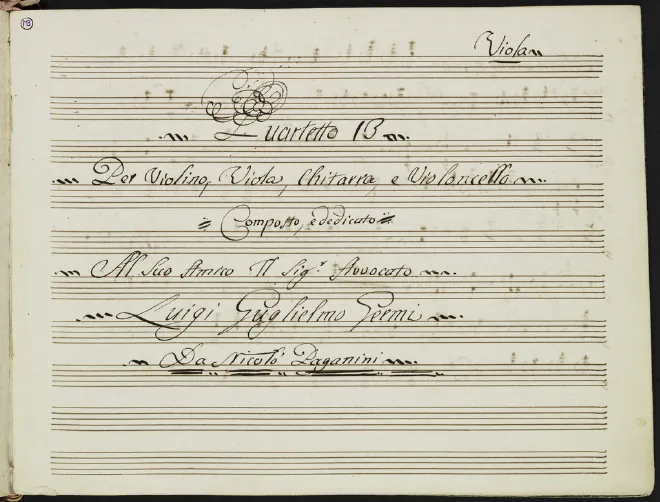 Viola
Quartetto 13
Per Violino, Viola, Chitarra, e Violoncello
Composto, e dedicato
Al Suo Amico Il Sig.r Avvocato
Luigi Guglielmo Germi
Da Nicolò Paganini